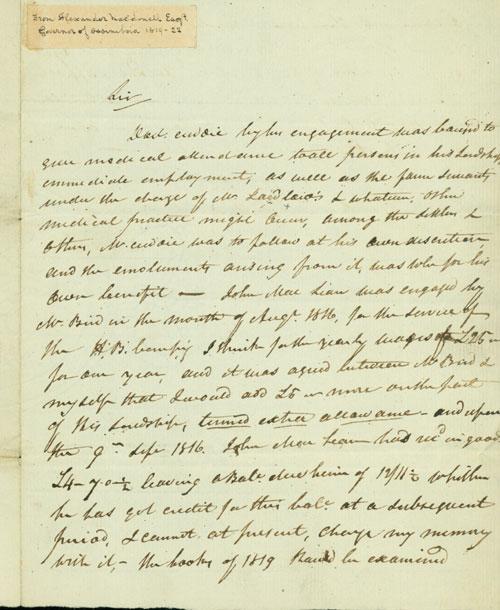 From Alexander Macdonell Esqr.
Governor of Assiniboia 1819-22
Sir
by his engagement was bound to
give medical attendance to all persons in his Lordship
immediate employment, as well as the farm servants
under the charge of Mr. Laidlaw's & whatever other
medical practice might occur, among the settlers &
others, Mr. was to follow at his own discretion
and the emoluments arising from it, was to be for his
own benefit — John Mac Lean was engaged by
Mr Bird in the month of Augt. 1816, for the service of
the H. B. Compy I think for the yearly wages of £25 or
for one year, and it was agreed between Mr Bird &
myself that I would add £5 or more on the part
of His Lordship, termed extra allowance - and upon
the 9th Sept 1816. John Mac Lean had recd in goods
£4-7-0½ leaving a Balce due him of 12/11½ whether
he has got credit for this balce at a subsequent
period, I cannot at present, charge my memory
with it, - the books of 1819 should be examined